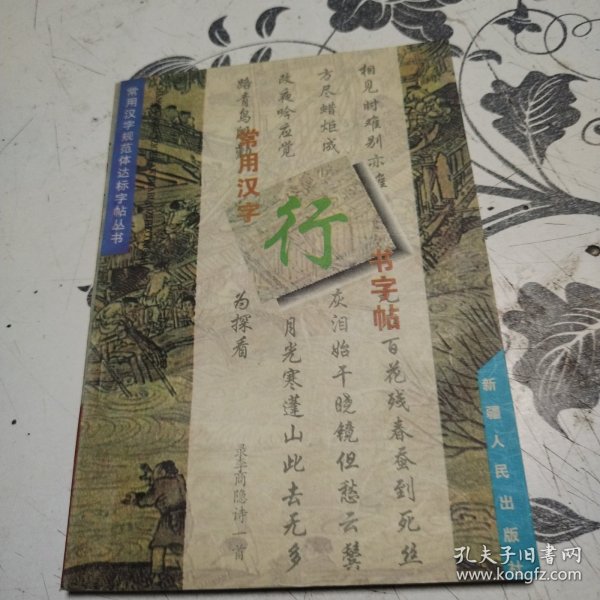 常用汉字规范体达标字帖丛书
常用汉字
行
书字帖
相见时难别亦
百花残春蚕到死丝
方尽蜡炬成
灰泪始干晓镜但愁云鬓
改夜吟应觉
月光寒蓬山此去无多
路青鸟
为探看
录李商隐诗一首
新疆人民出版
孔夫子旧书网
www.kongfz.com